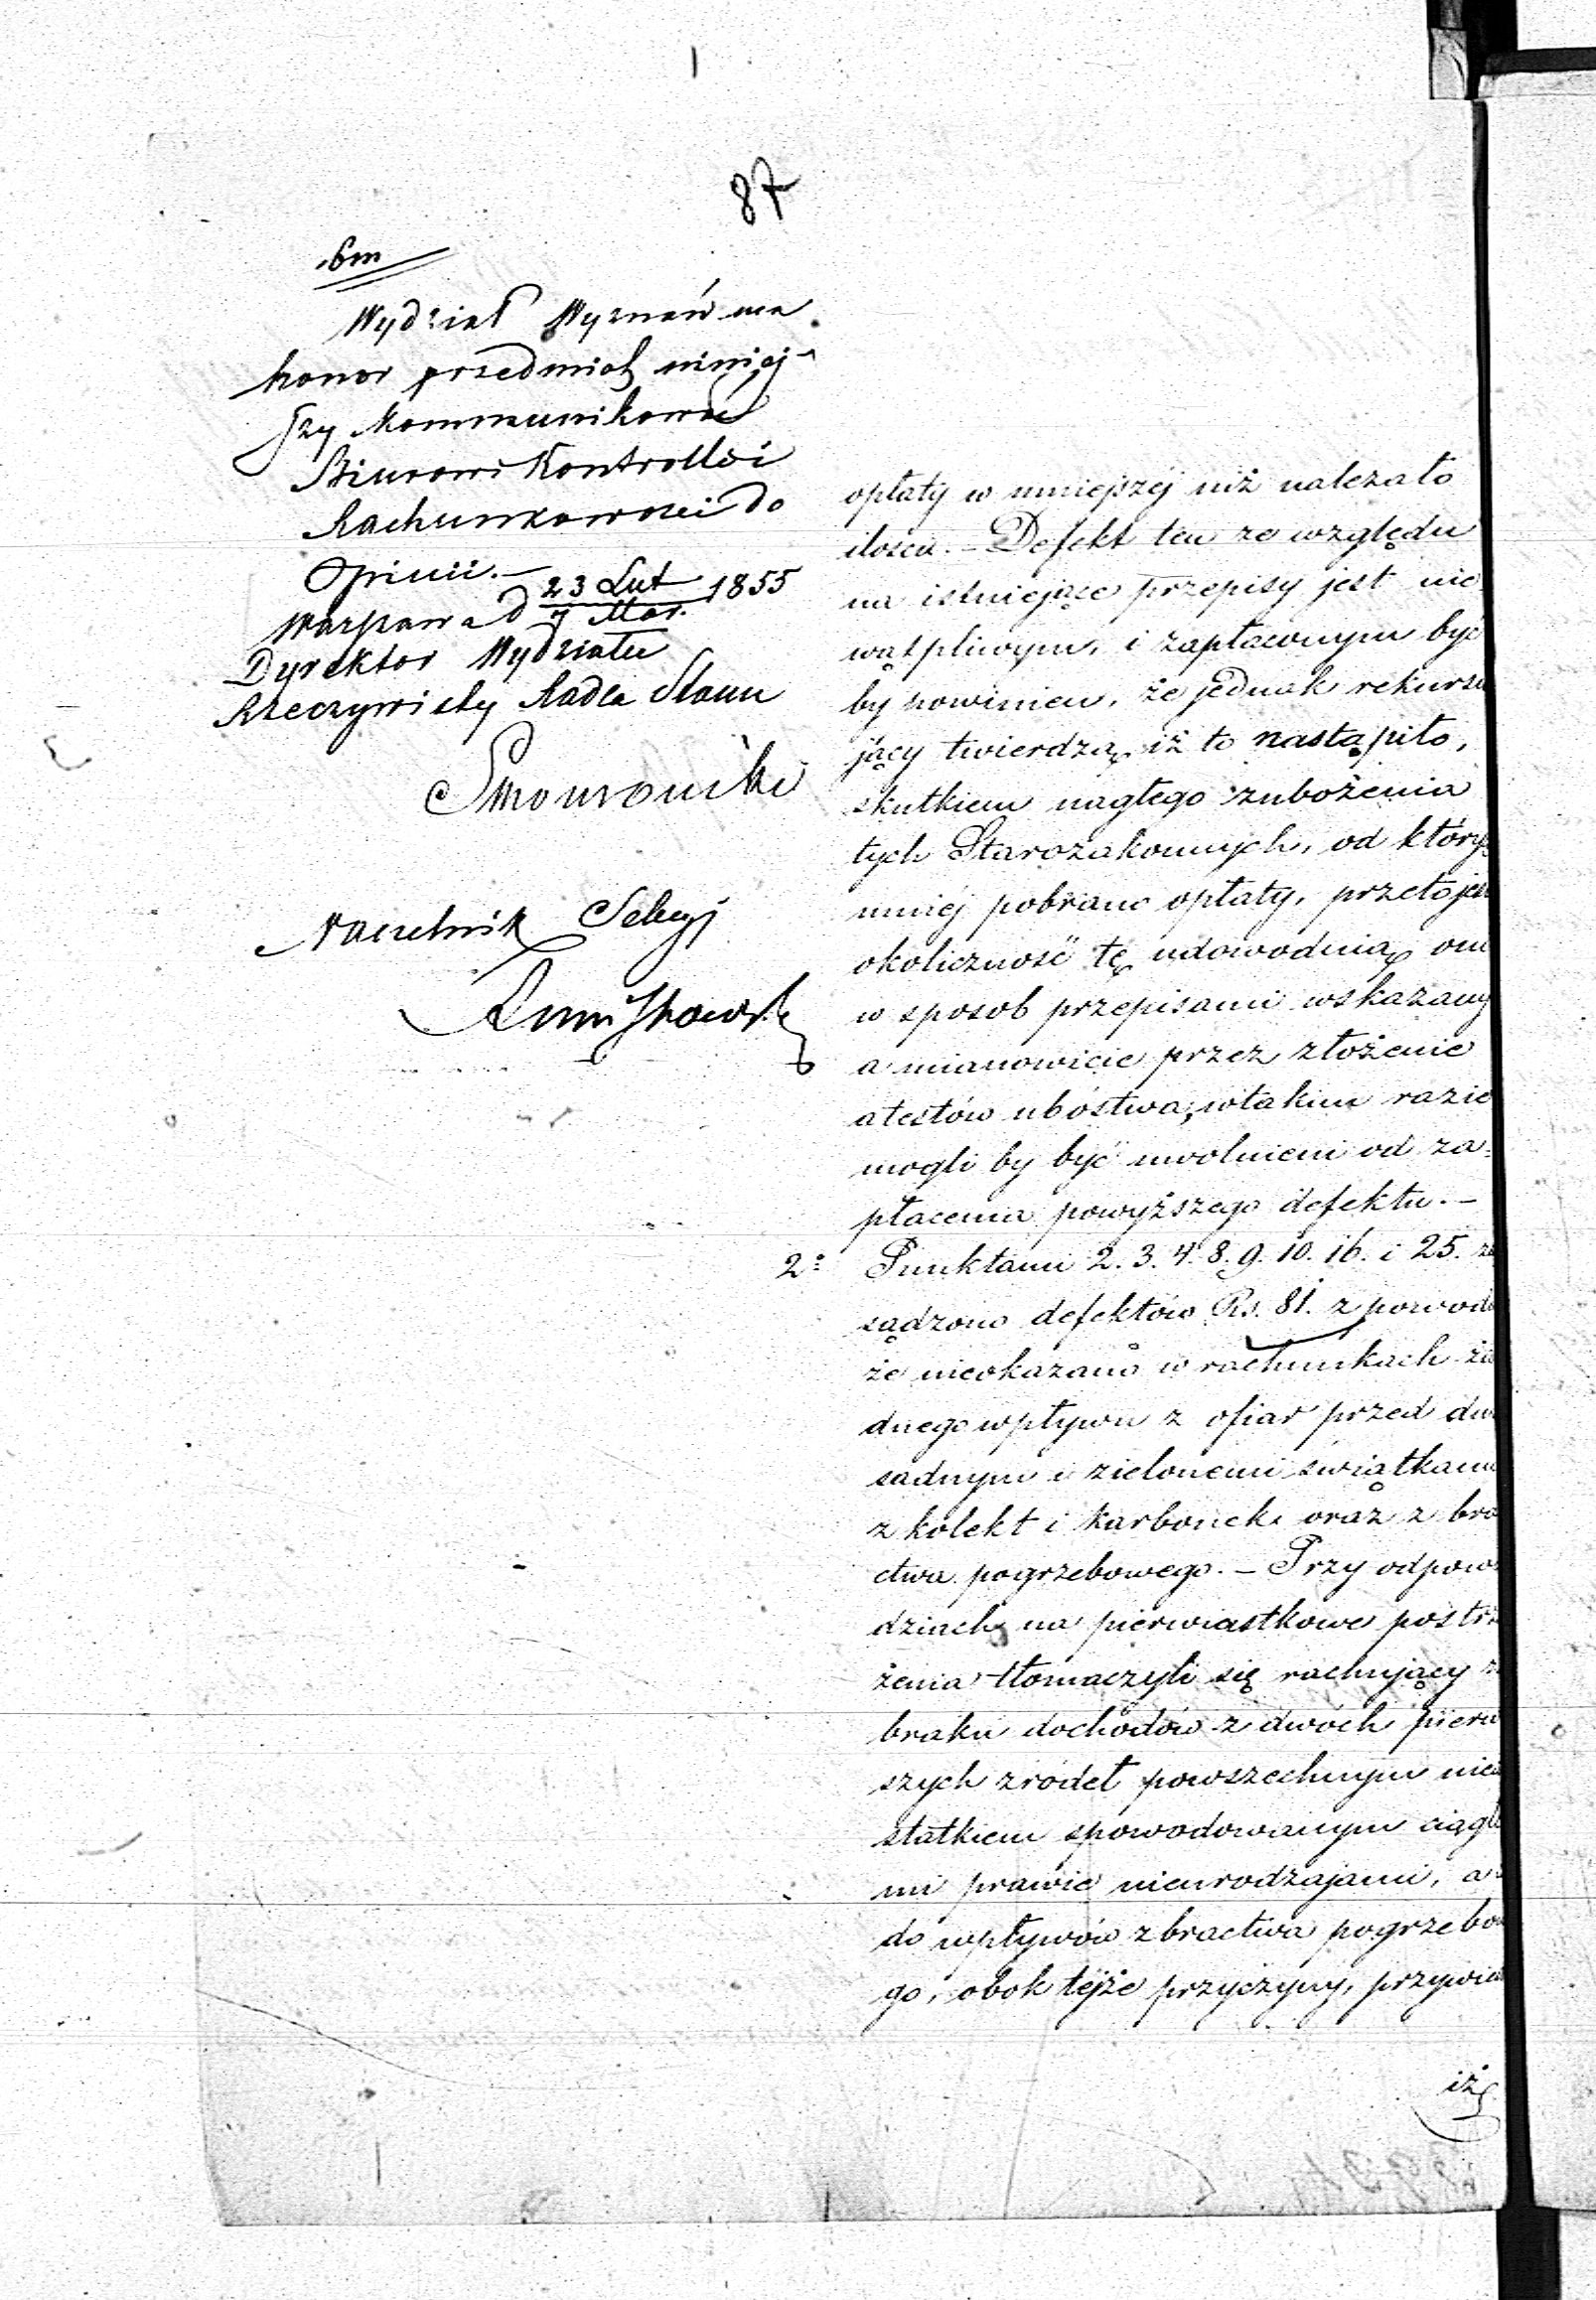 87
Wydział Wyznań ma
honor przedmiot niniej-
szy kommunikować
Biurowi Kontrolli i
Rachunkowości do
Opinii. —
Warszawa d 23 Lut / 7 Mar. 1855
Dyrektor Wydziału
Rzeczywisty Radca Stanu
Naczelnik Sekcyi
opłaty w mniejszéj niż należało
ilości. — Defekt ten ze względu
na istniejące przepisy jest nie
wątpliwym, i zapłaconym być
by powinien, że jednak rekursu
jący twierdzą, iż to nastąpiło,
skutkiem nagłego zubożenia
tych Starozakonnych, od któryc
mniéj pobrano opłaty, przeto jeś
okoliczność tę udowodnią, oni
w sposob przepisami wskazany
a mianowicie przez złożenie
atestów ubóstwa, w takim razie
mogli by być uwolnieni od za=
płacenia powyższego defektu. —
2° Punktami 2. 3. 4. 8. 9. 10. 16. i 25. za
sądzono defektów Rs. 81. z powodu
że nieokazano w rachunkach ża
dnego wpływu z ofiar przed
sadnym i zielonemi świątkami
z kolekt i karbonek, oraz z bra
ctwa pogrzebowego. — Przy odpowie
dziach na pierwiastkowe postrze
żenia tłomaczyli się rachujący z
braku dochodów z dwóch pierw
szych zrodeł powszechnym niedo
statkiem spowodowanym ciągłe
mi prawie nieurodzajami, a
do wpływów z bractwa pogrzebowe
go, obok téjże przyczyny, przywie
iż